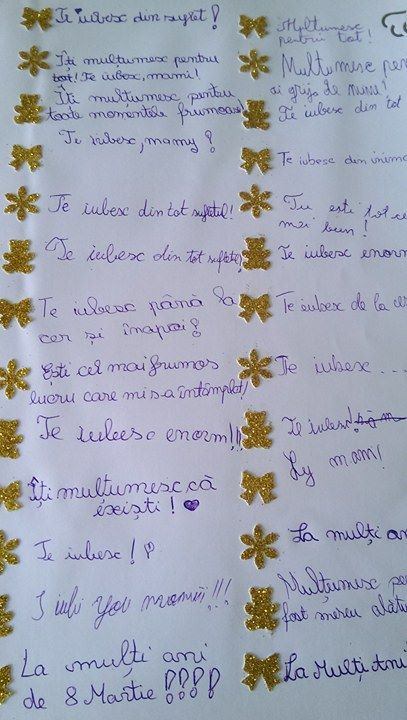 Te iubesc din suflet!
Îți mulțumesc pentru
tot! Te iubesc, mami!
Îți mulțumesc pentru
toate momentele frumoase!
Te iubesc, mamy!
Te iubesc din tot sufletul!
Te iubesc din tot sufletul!
Te iubesc până la
cer și înapoi!
Ești cel mai frumos
lucru care mi s-a întâmplat!
Te iubesc enorm!!!
Îți mulțumesc că
exiști!
Te iubesc!!
I iubi you mamiii!!!
La mulți ani
de 8 Martie!!!!
Mulțumesc
pentru tot!
Mulțumesc
ai grijă de mine!
Te iubesc din tot
Te iubesc din
Tu ești tot ce
mai bun!
Te iubesc enorm
Te iubesc de la
Te iubesc...
Te iubesc!
Ly mam!
La mulți
Mulțumesc
fost mereu
La Mulți Ani